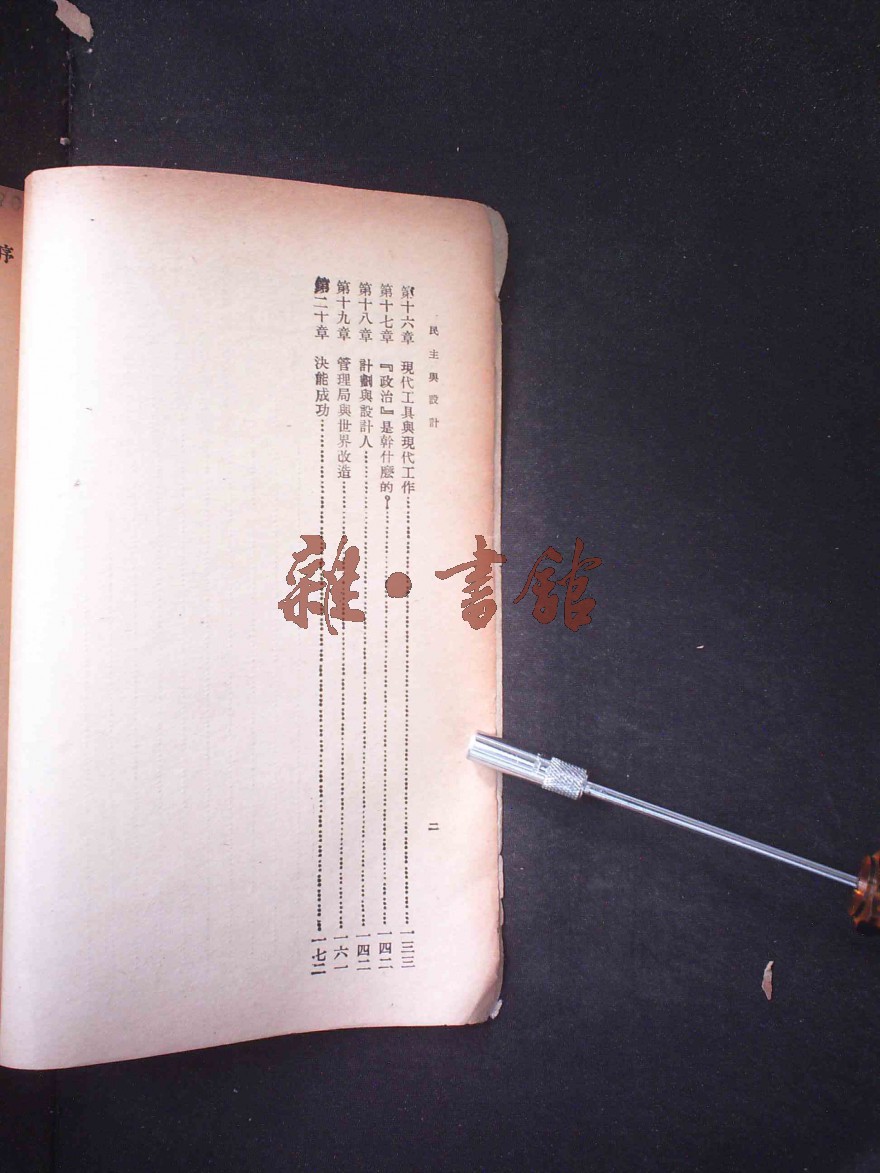 民主與設計
二
第十六章 現代工具與現代工作……一三三
第十七章 『政治』是幹什麼的？……一四二
第十八章 計劃與設計人……一四二
第十九章 管理局與世界改造……一六一
第二十章 決能成功……一七二
序
雜·書館